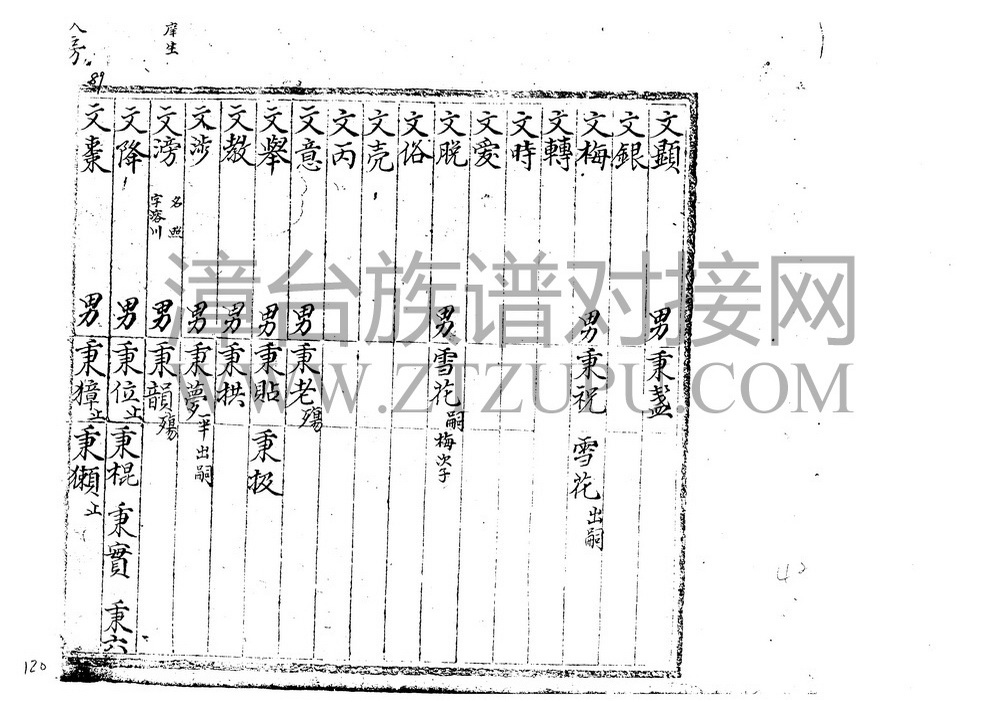 庠生
文顯 男秉盞
文銀
文梅 男秉祝 雪花出嗣
文轉
文時
文愛
文脫 男雪花嗣梅次子
文俗
文売
文丙
文意 男秉老殤
文舉 男秉貼 秉扱
文教 男秉拱
文涉 男秉夢一半出嗣
文滂 名熙 字溶川 男秉韻殤
文降 男秉位止 秉棍 秉實 秉六
文棗 男秉獐止 秉獺止
89
120
漳台族谱对接网
WWW.ZTZUPU.COM